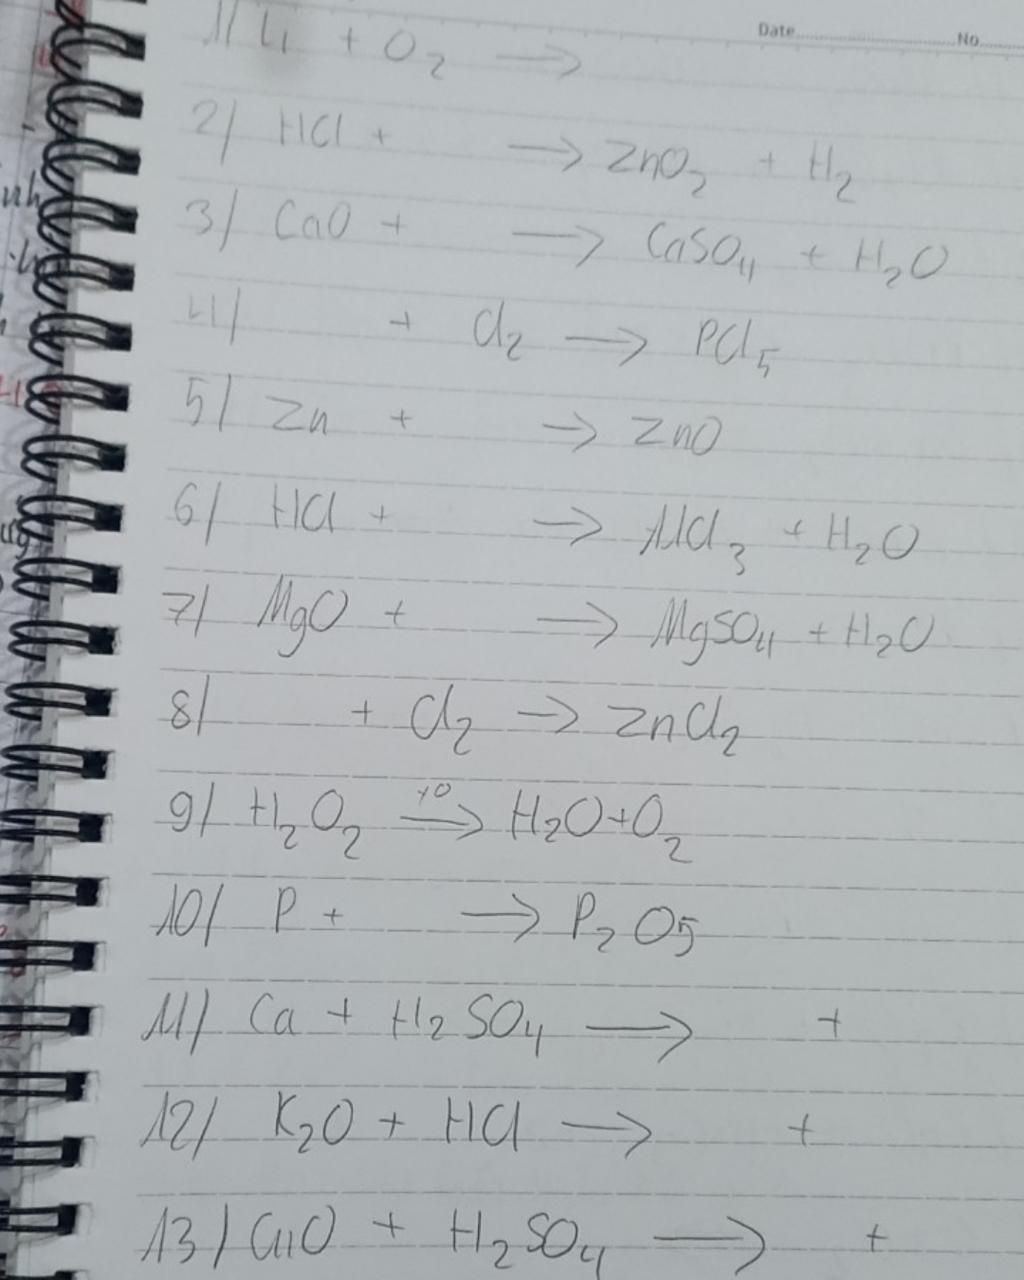 Date No
1/ Li + O2 →
2/ HCl + → ZnO2 + H2
3/ CaO + → CaSO4 + H2O
4/ + Cl2 → PCl5
5/ Zn + → ZnO
6/ HCl + → AlCl3 + H2O
7/ MgO + → MgSO4 + H2O
8/ + Cl2 → ZnCl2
9/ H2O2 → H2O + O2
10/ P + → P2O5
11/ Ca + H2SO4 → +
12/ K2O + HCl → +
13/ CuO + H2SO4 → +